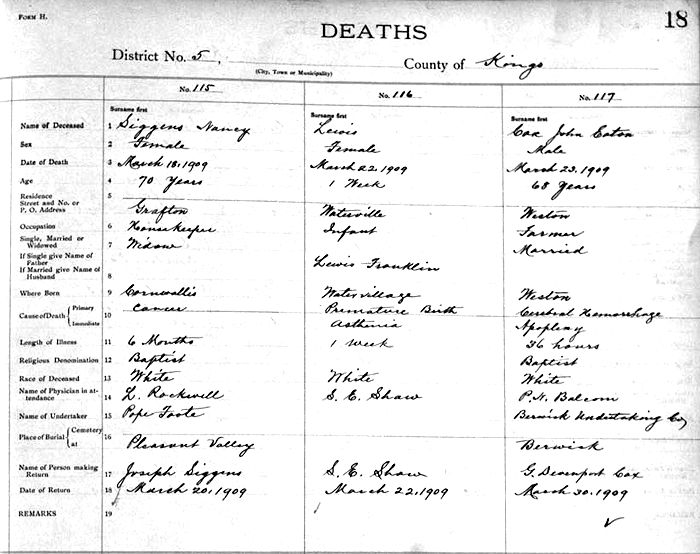 FORM H.
18
DEATHS
District No. 5, County of Kings
(City, Town or Municipality)
No. 115 No. 116 No. 117
Surname first Surname first Surname first
Name of Deceased 1 Siggens Nancy Lewis Cox John Eaton
Sex 2 Female Female Male
Date of Death 3 March 18, 1909 March 22, 1909 March 23, 1909
Age 4 70 Years 1 Week 68 Years
Residence Street and No. or P. O. Address 5 Grafton Waterville Weston
Occupation 6 Housekeeper Infant Farmer
Single, Married or Widowed 7 Widow Married
If Single give Name of Father
If Married give Name of Husband 8 Lewis Franklin
Where Born 9 Cornwallis Watervillage Weston
Cause of Death { Primary 10 Cancer Premature Birth Cerebral Hemorrhage
Immediate Asthenia Apoplexy
Length of Illness 11 6 Months 1 week 36 hours
Religious Denomination 12 Baptist Baptist
Race of Deceased 13 White White White
Name of Physician in attendance 14 L. Rockwell S. E. Shaw P. N. Balcom
Name of Undertaker 15 Pope Foote Berwick Undertaking Co,
Place of Burial { Cemetery at 16 Pleasant Valley Berwick
Name of Person making Return 17 Joseph Siggens S. E. Shaw G. Devenport Cox
Date of Return 18 March 20, 1909 March 22, 1909 March 30, 1909
REMARKS 19